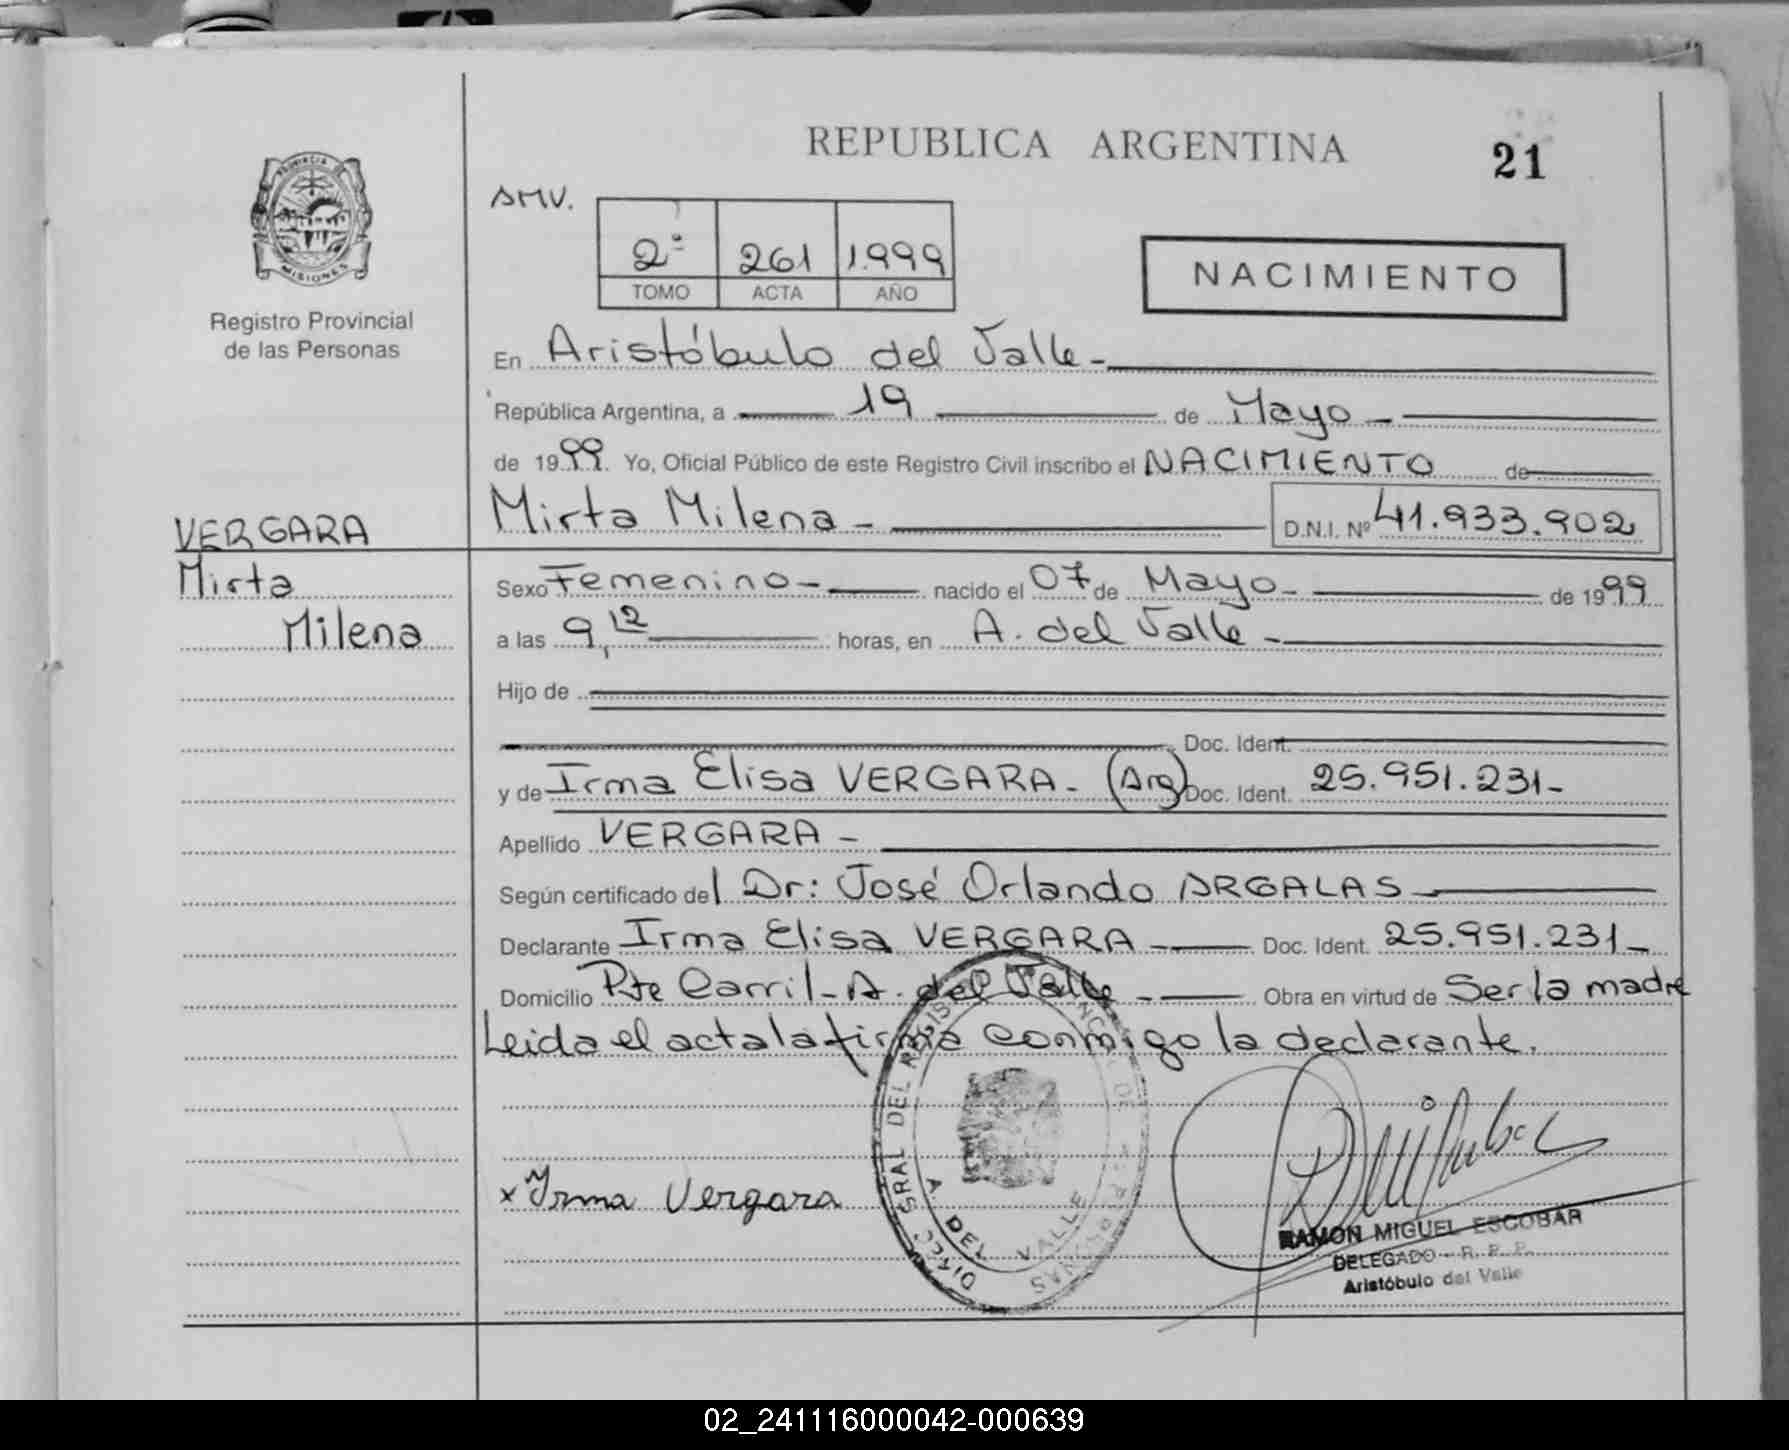 REPUBLICA ARGENTINA
21
AMV.
2º 261 1.999
TOMO ACTA AÑO
NACIMIENTO
PROVINCIA
MISIONES
Registro Provincial
de las Personas
En Aristóbulo del Valle -
República Argentina, a 19 de Mayo -
de 1999. Yo, Oficial Público de este Registro Civil inscribo el NACIMIENTO de
VERGARA
Mirta Milena - D.N.I. Nº 41.933.902
Mirta
Milena
Sexo Femenino - nacido el 07 de Mayo - de 1999
a las 9,12 horas, en A. del Valle -
Hijo de
Doc. Ident.
y de Irma Elisa VERGARA - (Arg) Doc. Ident. 25.951.231 -
Apellido VERGARA -
Según certificado del Dr: José Orlando ARGALAS -
Declarante Irma Elisa VERGARA - Doc. Ident. 25.951.231 -
Domicilio Pte Carril - A. del Valle - Obra en virtud de Ser la madre
Leida el acta la firma conmigo la declarante.
x Irma Vergara
A. DEL VALLE
RAMON MIGUEL ESCOBAR
DELEGADO - R. P. P.
Aristóbulo del Valle
02_241116000042-000639